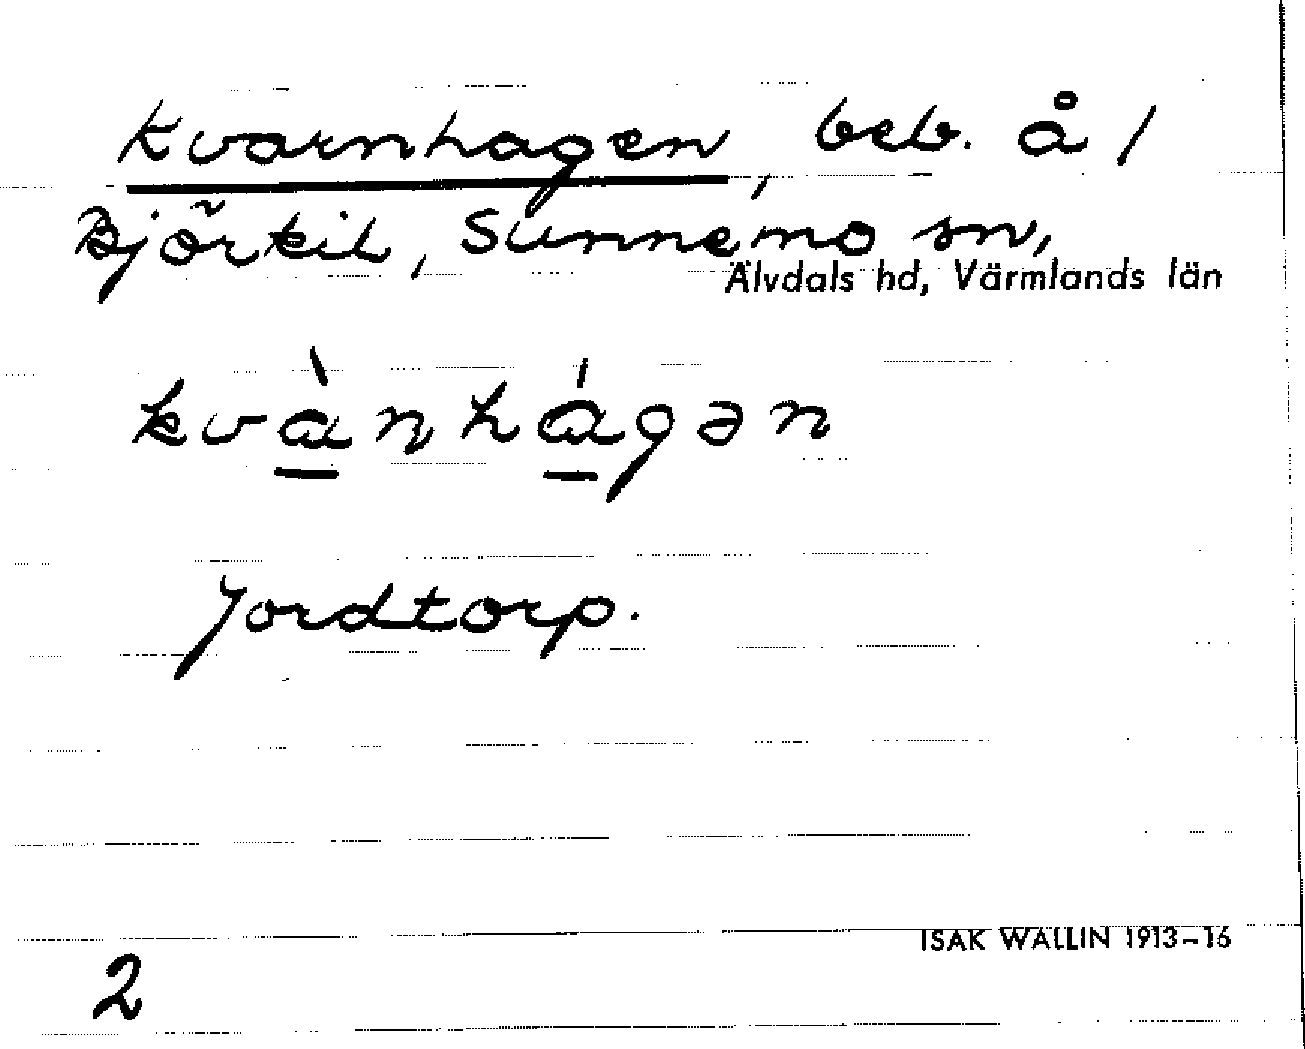 Kvarnhagen, beb. å /
Björkil, Sunnemo sn,
Älvdals hd, Värmlands län
kvànhágən
Jordtorp.
ISAK WALLIN 1913–16
2